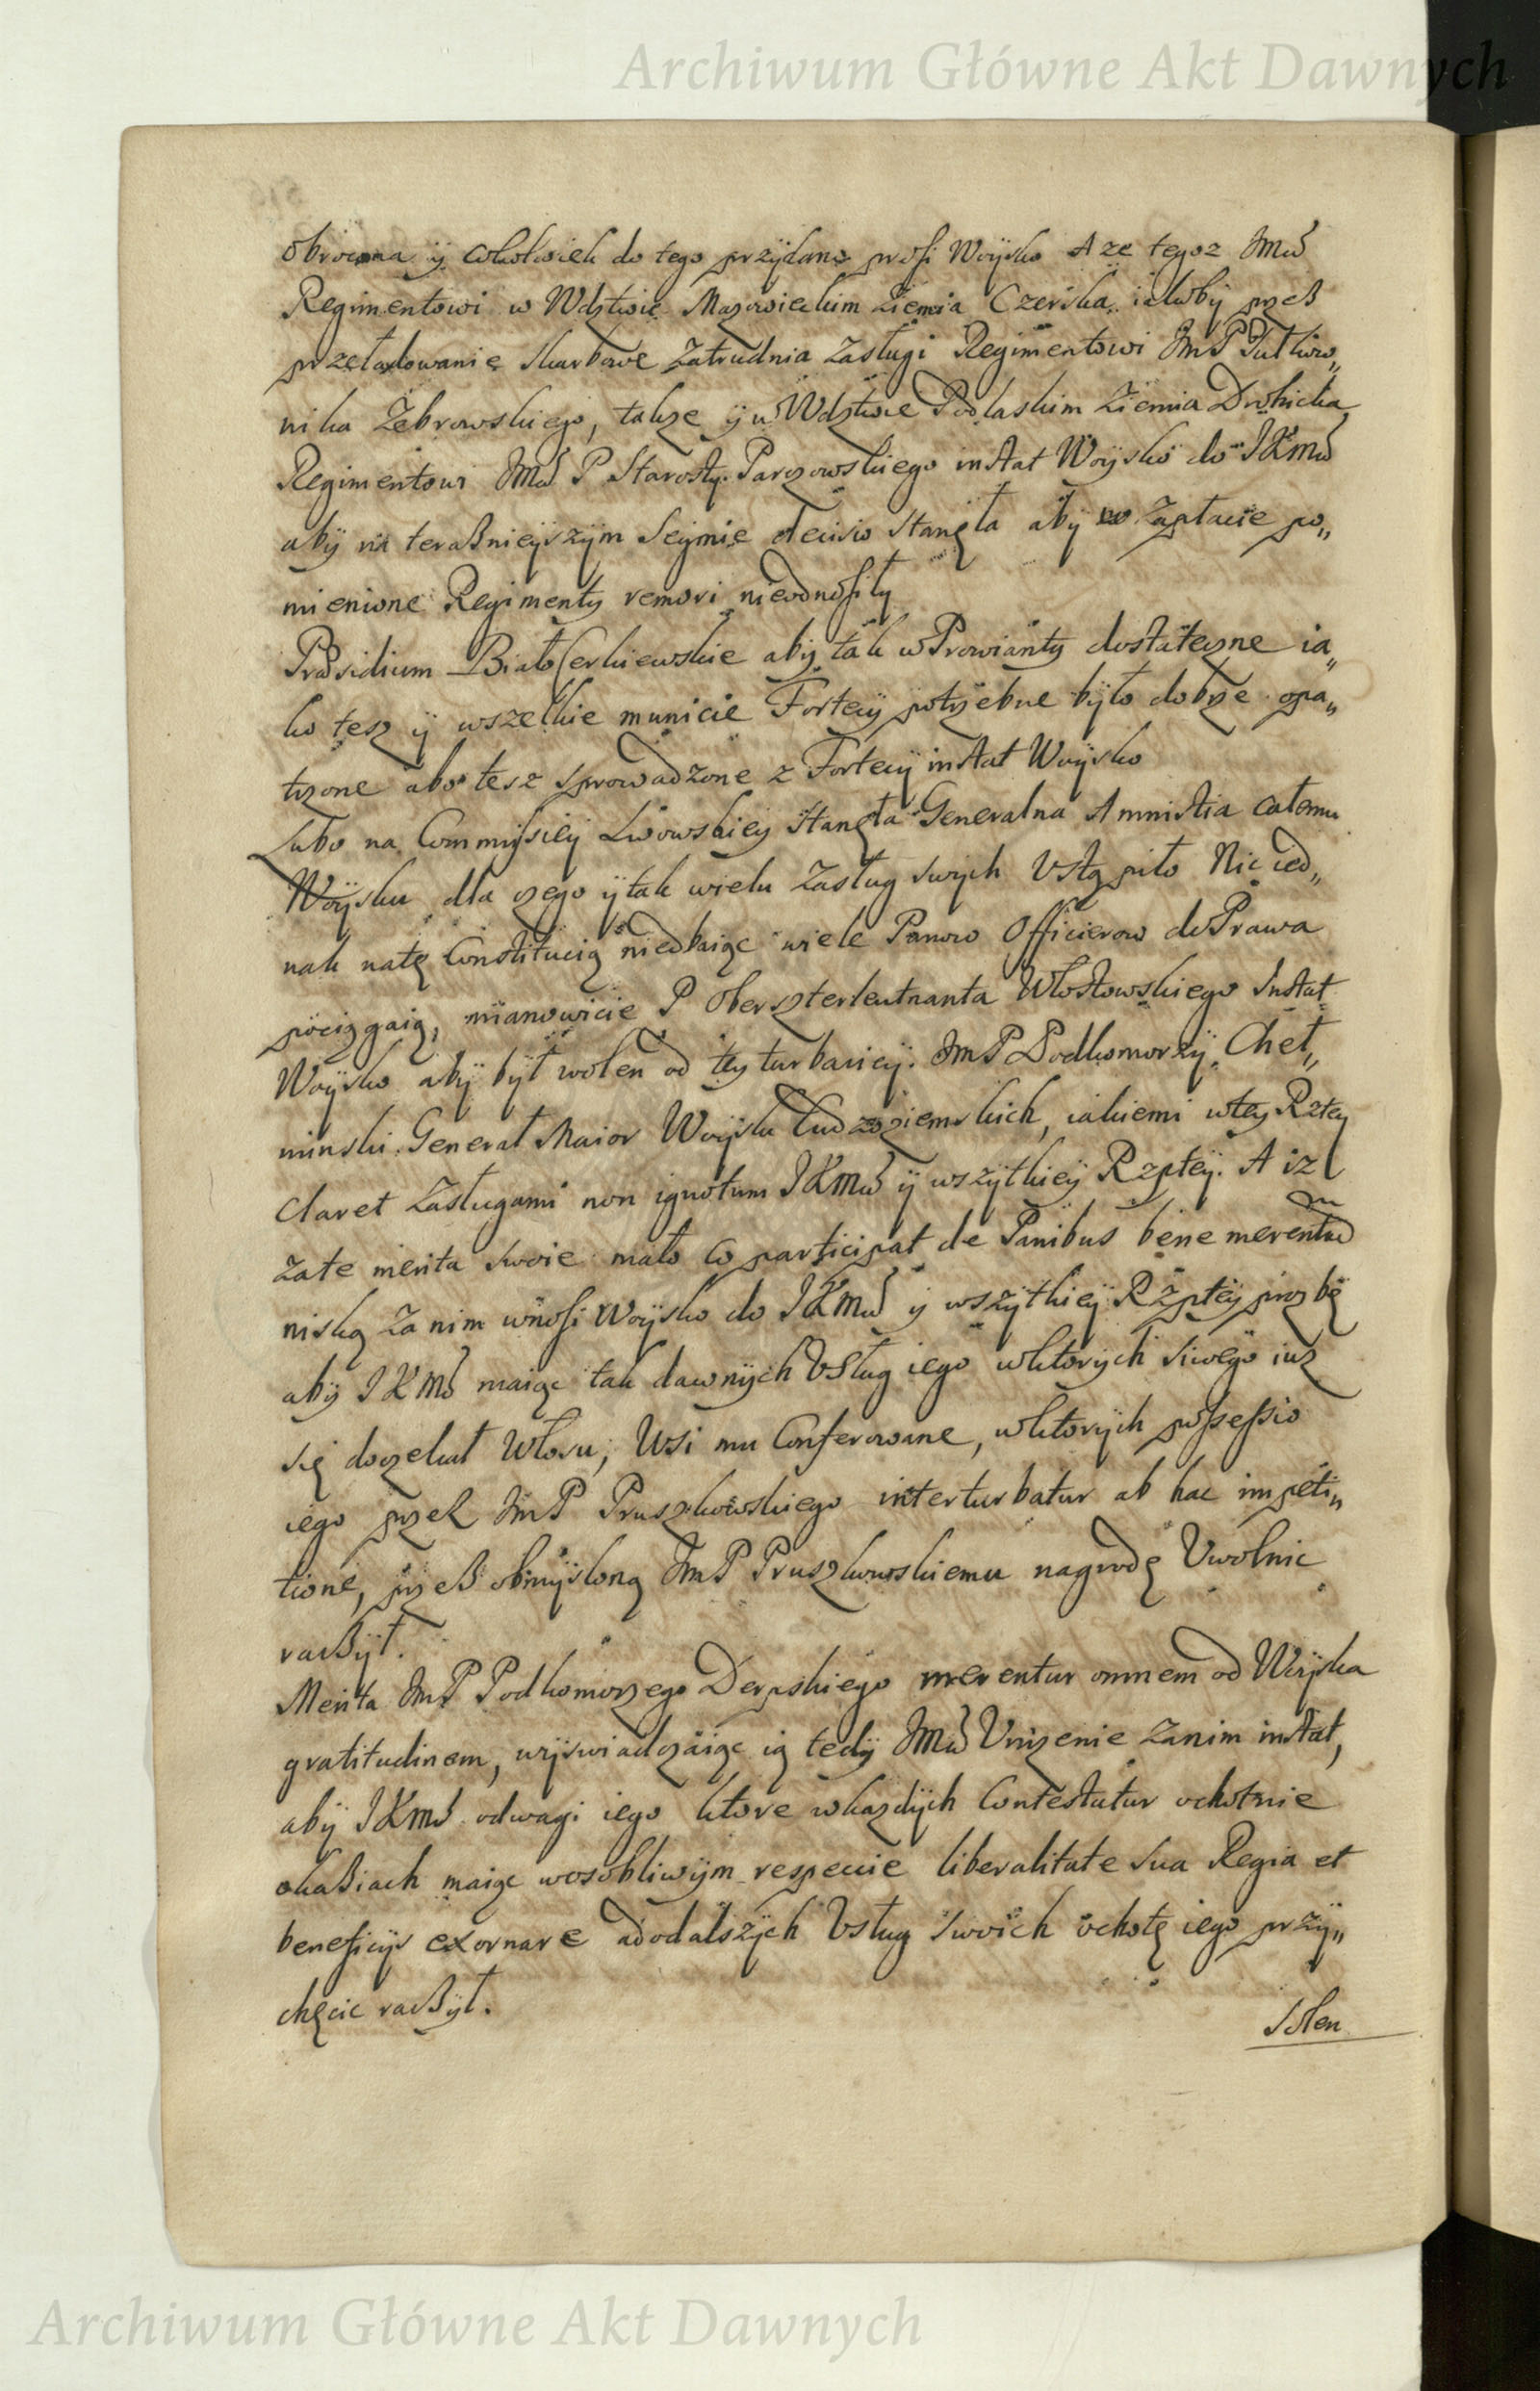 Archiwum Główne Akt Dawnych
obrocona ÿ cokolwiek do tego przÿdano prosi Woÿsko A ze tegoz Jmć
Regimentowi w Wdztwie Mazowieckim Ziemia Czerska iakoby przeß
przeładowanie skarbowe zatrudnia zasługi Regimentowi JmP Pułkow„
nika Zebrowskiego, takze ÿ w Wdztwie Podlaskim Ziemia Drohicka
Regimentowi Jmć P Starosty Parczowskiego instat Woÿsko do JKmć
abÿ na teraßnieÿszÿm Seÿmie decisio stanęła abÿ w zapłacie po„
mienione Regimenty remori nieodnosiły
Præsidium Białocerkiewskie abÿ tak w Prowianty dostateczne ia„
ko tesz ÿ wszelkie municie Fortecÿ potrzebne było dobrze opa„
trzone abo tesz sprowadzone z Fortecÿ instat Woÿsko
Lubo na Commissieÿ Lwowskieÿ stanęła Generalna Amnistia całemu
Woÿsku dla czego ÿ tak wielu zasług swÿch Vstąpiło Nic ied„
nak natę Constitucią niedbaiąc wiele Panow Officierow do Prawa
pociągaią, mianowicie P Oberszterleutnanta Włostowskiego Instat
Woÿsko abÿ bÿł wolen od teÿ turbaciÿ. JmP Podkomorzÿ Cheł„
minski General Maior Woÿska Cudzoziemskich, iakiemi wteÿ Rzteÿ
claret zasługami non ignotum JKmć ÿ wszÿtkieÿ Rzpteÿ. A iz
zate merita swoie mało co participat de Panibus bene merentiu
niską za nim wnosi Woÿsko do JKmć ÿ wszÿtkieÿ Rzpteÿ prozbę
abÿ JKmć maiąc tak dawnÿch Vsług iego wktorÿch siwego iuz
się doczekał włosu, Wsi mu Conferowane, wktorÿch possessio
iego przeß JmP Pruszkowskiego interturbatur ab hac impeti„
tione, przeß obmÿsloną JmP Pruszkowskiemu nagrodę Vwolnic
racßÿł.
Merita JmP Podkomorzego Derpskiego merentur omnem od Woÿska
gratitudinem, wÿswiadczaiąc ią tedÿ Jmć Vnizenie zanim instat,
abÿ JKmć odwagi iego ktore wkazdÿch Contestatur ochotnie
okaßiach maiąc wosobliwÿm respecie liberalitate sua Regia et
beneficÿs exornare a dodalszÿch Vsług swoich ochotę iego przÿ„
chęcic racßÿł.
Solen
Archiwum Główne Akt Dawnych